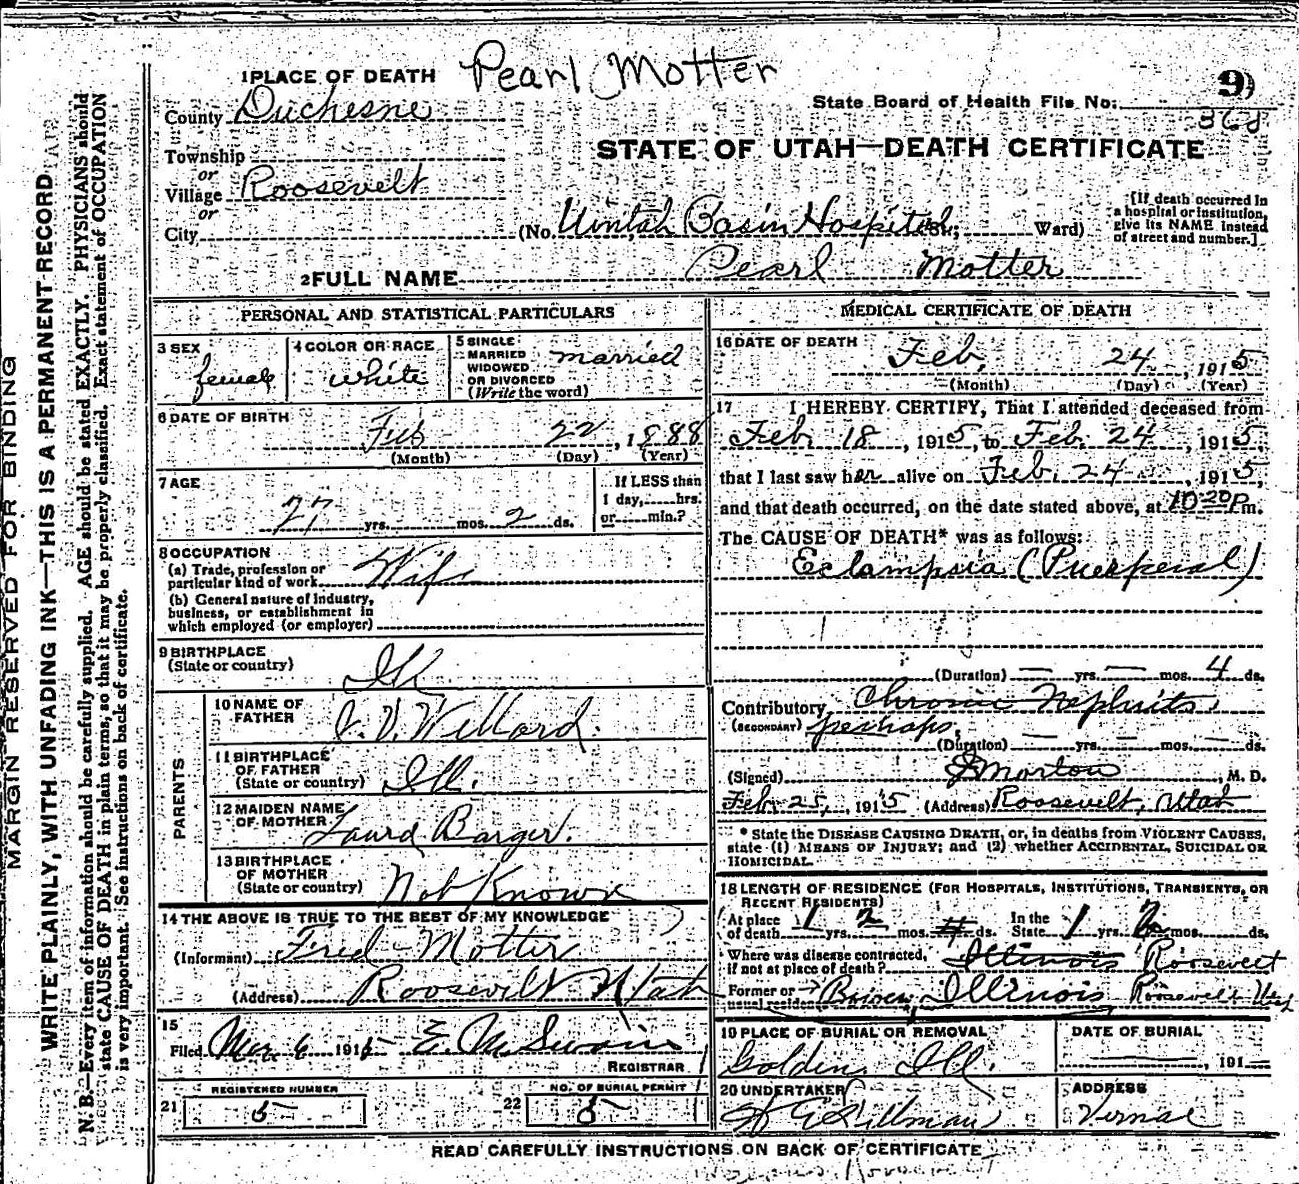 Pearl Motter
1 PLACE OF DEATH
9
State Board of Health File No.
368
County Duchesne
STATE OF UTAH—DEATH CERTIFICATE
Township
or
Village Roosevelt
or
City (No. Uintah Basin Hospital St.; Ward)
[If death occurred in
a hospital or institution,
give its NAME instead
of street and number.]
2 FULL NAME Pearl Motter
PERSONAL AND STATISTICAL PARTICULARS
3 SEX
female
4 COLOR OR RACE
white
5 SINGLE
MARRIED
WIDOWED
OR DIVORCED
(Write the word)
married
6 DATE OF BIRTH
Feb 22, 1888
(Month) (Day) (Year)
7 AGE
27 yrs. mos. 2 ds.
If LESS than
1 day, hrs.
or min.?
8 OCCUPATION
(a) Trade, profession or
particular kind of work Wife
(b) General nature of industry,
business, or establishment in
which employed (or employer)
9 BIRTHPLACE
(State or country)
Ill
PARENTS
10 NAME OF
FATHER
J. V. Willard.
11 BIRTHPLACE
OF FATHER
(State or country) Ill.
12 MAIDEN NAME
OF MOTHER Laura Barger.
13 BIRTHPLACE
OF MOTHER
(State or country) Not Known
14 THE ABOVE IS TRUE TO THE BEST OF MY KNOWLEDGE
(Informant) Fred Motter
(Address) Roosevelt Utah
15
Filed Mar 6 1915 E. McSwain
REGISTRAR
REGISTERED NUMBER
21 5
NO. OF BURIAL PERMIT
22 5
MEDICAL CERTIFICATE OF DEATH
16 DATE OF DEATH
Feb. 24, 1915
(Month) (Day) (Year)
17 I HEREBY CERTIFY, That I attended deceased from
Feb. 18, 1915, to Feb. 24, 1915,
that I last saw her alive on Feb. 24, 1915,
and that death occurred, on the date stated above, at 10:20 P.m.
The CAUSE OF DEATH* was as follows:
Eclampsia (Puerperal)
(Duration) — yrs. — mos. 4 ds.
Contributory Chronic Nephritis
(SECONDARY) perhaps.
(Duration) — yrs. — mos. — ds.
(Signed) Morton, M. D.
Feb. 25, 1915 (Address) Roosevelt, Utah
* State the DISEASE CAUSING DEATH, or, in deaths from VIOLENT CAUSES,
state (1) MEANS OF INJURY; and (2) whether ACCIDENTAL, SUICIDAL OR
HOMICIDAL.
18 LENGTH OF RESIDENCE (FOR HOSPITALS, INSTITUTIONS, TRANSIENTS, OR
RECENT RESIDENTS)
At place
of death 1 yrs. 2 mos. ds. In the
State 1 yrs. 2 mos. ds.
Where was disease contracted,
if not at place of death? Illinois Roosevelt
Former or
usual residence Illinois Roosevelt Utah
19 PLACE OF BURIAL OR REMOVAL
Golden, Ill.
DATE OF BURIAL
, 191
20 UNDERTAKER
Dillman
ADDRESS
Vernal
READ CAREFULLY INSTRUCTIONS ON BACK OF CERTIFICATE
MARGIN RESERVED FOR BINDING
WRITE PLAINLY, WITH UNFADING INK—THIS IS A PERMANENT RECORD
N. B.—Every item of information should be carefully supplied. AGE should be stated EXACTLY. PHYSICIANS should
state CAUSE OF DEATH in plain terms, so that it may be properly classified. Exact statement of OCCUPATION
is very important. See instructions on back of certificate.